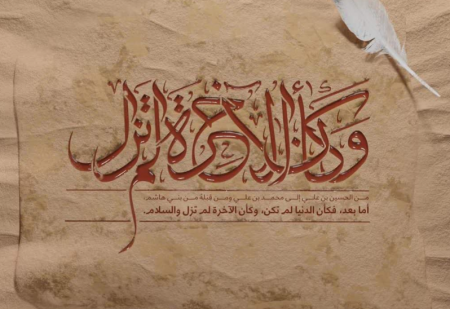 وكأن الآخرة لم تزل
من الحسين بن علي إلى محمد بن علي ومن قبله من بني هاشم:
أما بعد، فكأن الدنيا لم تكن، وكأن الآخرة لم تزل والسلام.